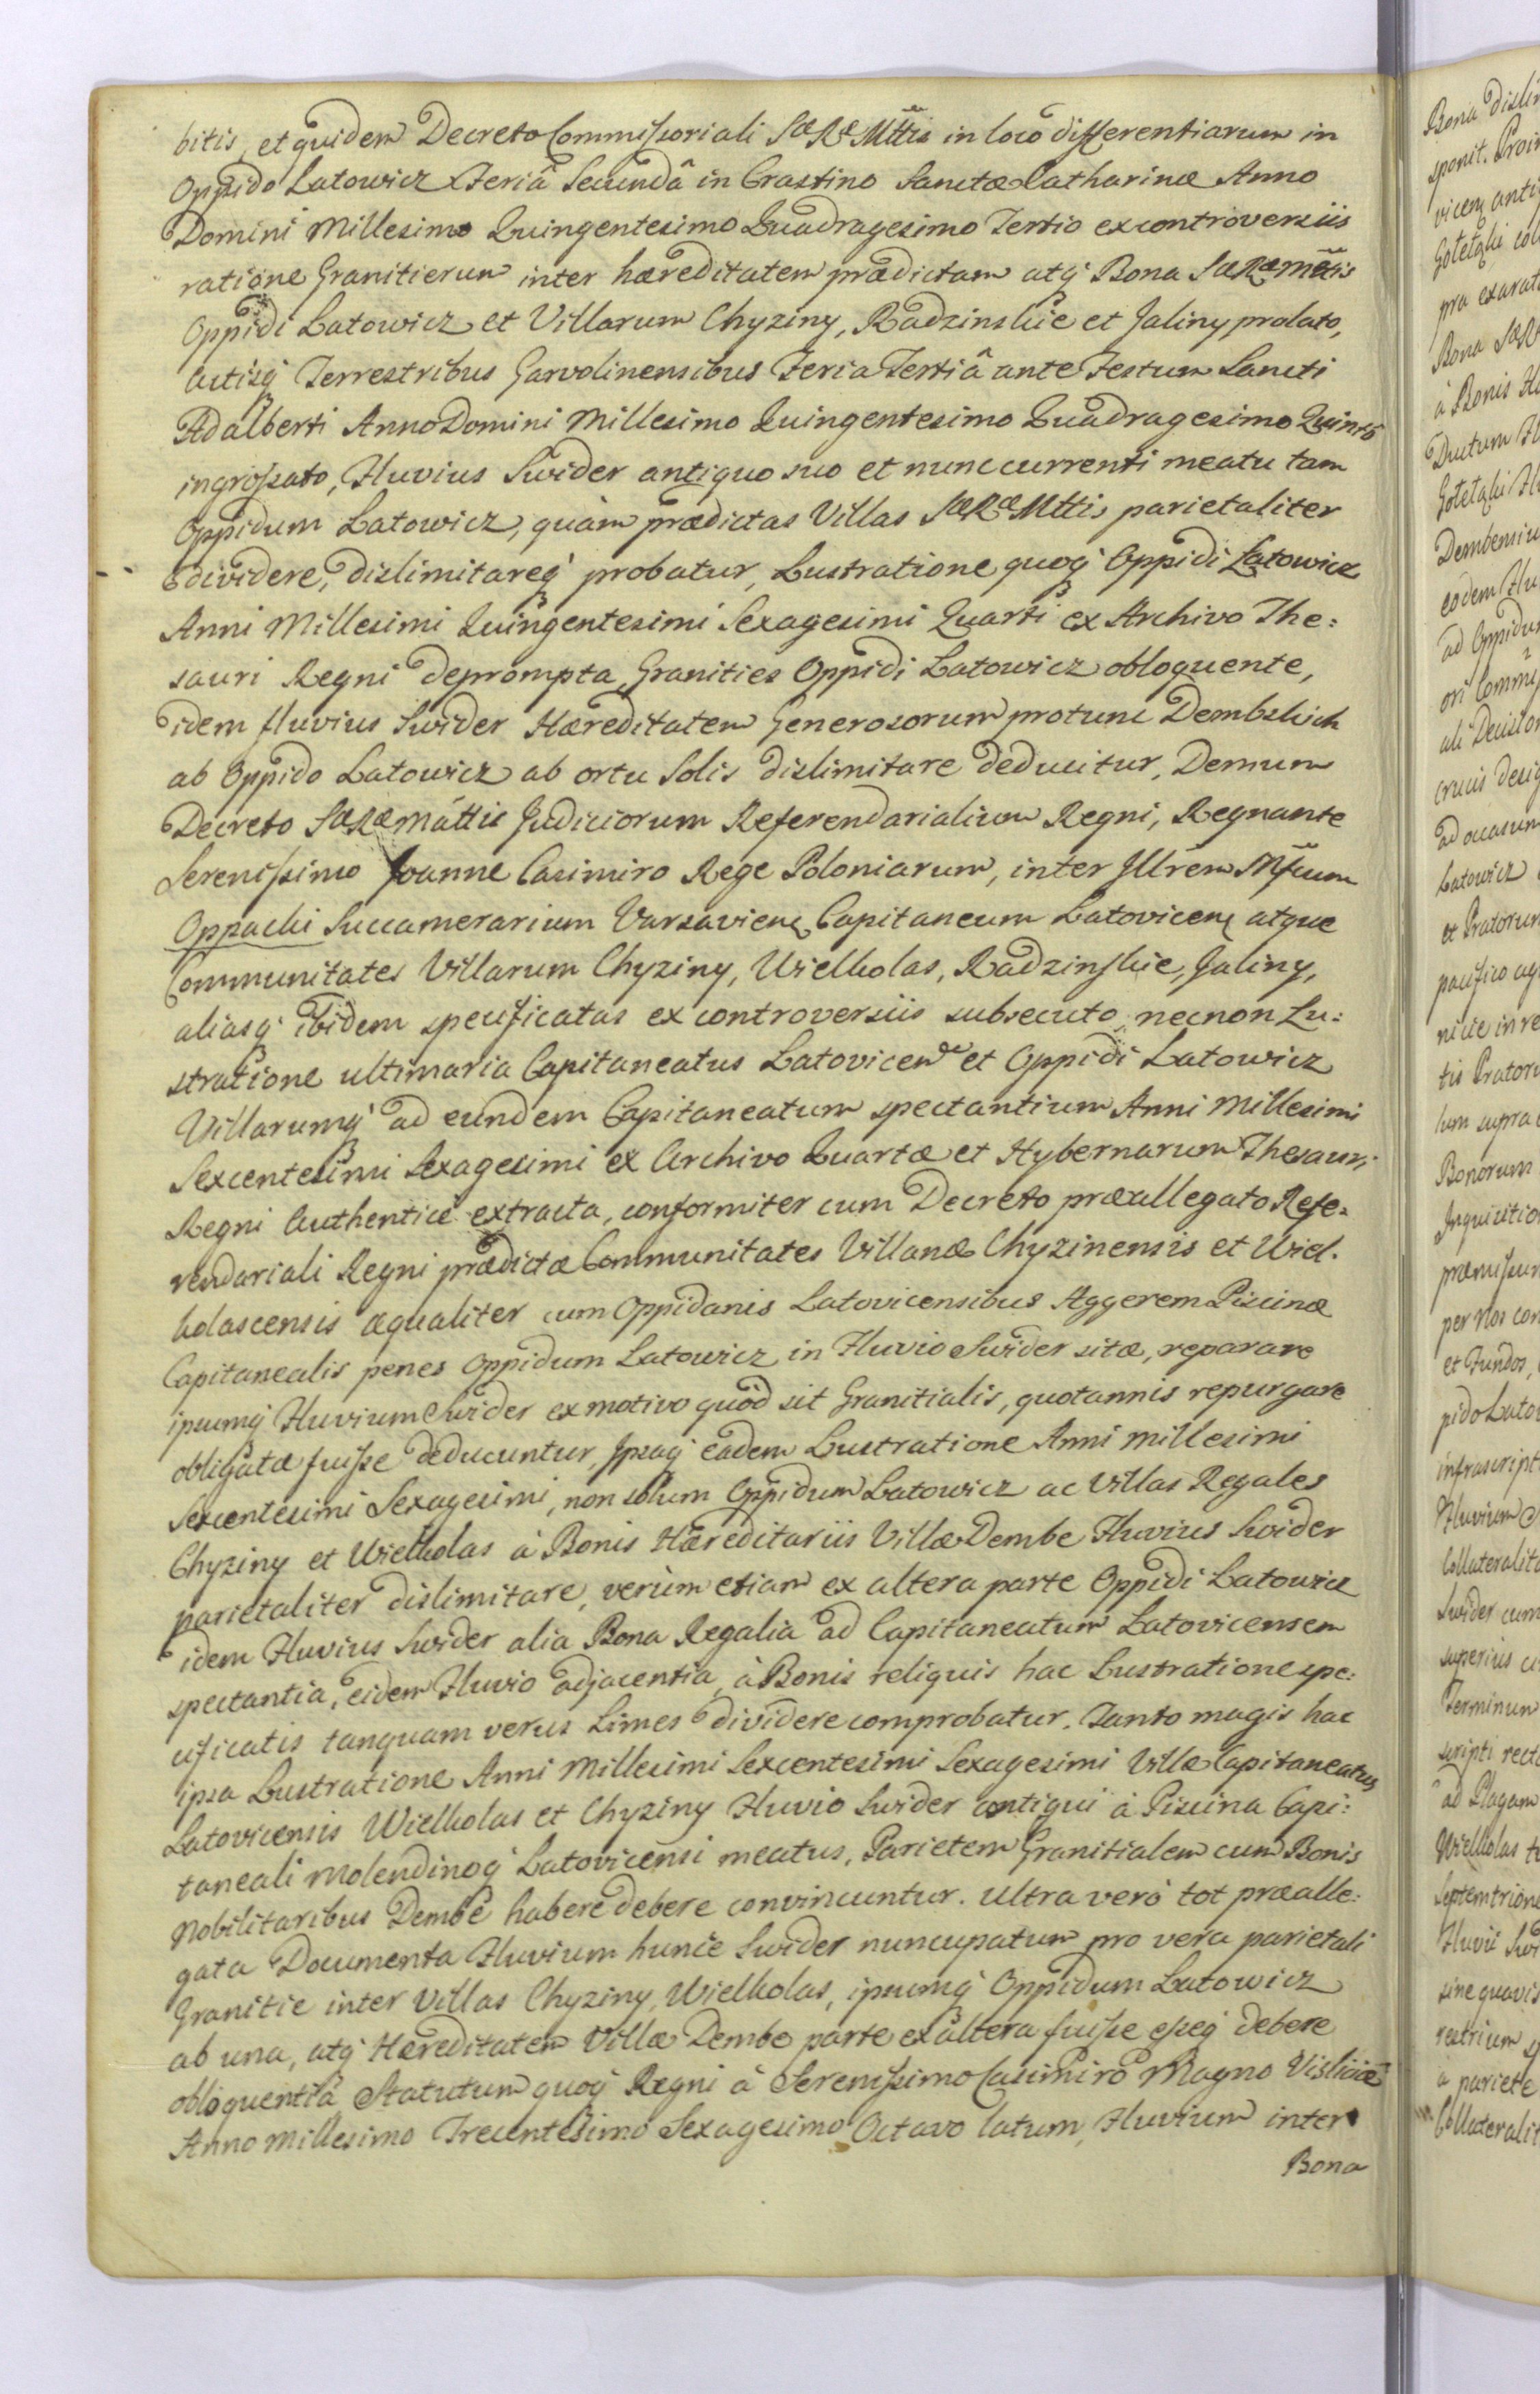 bitis, et quidem Decreto Commissoriali SæRæMttis in loco differentiarum in
Oppido Latowicz Feriâ Secundâ in Crastino Sanctæ Catharinæ Anno
Domini Millesimo Quingentesimo Quadragesimo Tertio ex controversiis
ratione Granitierum inter hæreditatem prædictam atq; Bona SæRæMttis
Oppidi Latowicz et Villarum Chyziny, Radzinskie et Jaliny prolato,
Actisq; Terrestribus Garvolinensibus Feria Tertiâ ante Festum Sancti
Adalberti Anno Domini Millesimo Quingentesimo Quadragesimo Quinto
ingrossato, Fluvius Swider antiquo suo et nunc currenti meatu tam
Oppidum Latowicz, quàm prædictas Villas SæRæMttis parietaliter
dividere, dislimitareq; probatur, Lustratione quoq; Oppidi Latowicz
Anni Millesimi Quingentesimi Sexagesimi Quarti ex Archivo The=
sauri Regni deprompta, Granities Oppidi Latowicz obloquente,
idem fluvius Swider Hæreditatem Generosorum protunc Dembskich
ab Oppido Latowicz ab ortu Solis dislimitare deducitur, Demum
Decreto SæRæMattis Judiciorum Referendarialium Regni, Regnante
Serenissimo Joanne Casimiro Rege Poloniarum, inter Illrem Mfcum
Oppacki Succamerarium Varsavien. Capitaneum Latovicen. atque
Communitates Villarum Chyziny, Wielkolas, Radzinskie, Jaliny,
aliasq; ibidem specificatas ex controversiis subsecuto, necnon Lu=
stratione ultimaria Capitaneatus Latovicen. et Oppidi Latowicz
Villarumq; ad eundem Capitaneatum spectantium Anni Millesimi
Sexcentesimi Sexagesimi ex Archivo Quartæ et Hybernarum Thesauri
Regni Authenticè extracta, conformiter cum Decreto præallegato Refe=
rendariali Regni prædictæ Communitates Villanæ Chyzinensis et Wiel-
kolascensis æqualiter cum Oppidanis Latovicensibus Aggerem Piscinæ
Capitanealis penes Oppidum Latowicz in Fluvio Swider sitæ, reparare
ipsumq; Fluvium Swider ex motivo quòd sit Granitialis, quotannis repurgare
obligatæ fuisse deducuntur, Ipsaq; eadem Lustratione Anni Millesimi
Sexcentesimi Sexagesimi, non solum Oppidum Latowicz ac Villas Regales
Chyziny et Wielkolas à Bonis Hæreditariis Villæ Dembe Fluvius Swider
parietaliter dislimitare, verùm etiam ex altera parte Oppidi Latowicz
idem Fluvius Swider alia Bona Regalia ad Capitaneatum Latovicensem
spectantia, eidem Fluvio adjacentia, à Bonis reliquis hac Lustratione spe=
cificatis tanquam verus Limes dividere comprobatur. Tanto magis hac
ipsa Lustratione Anni Millesimi Sexcentesimi Sexagesimi Villæ Capitaneatus
Latovicensis Wielkolas et Chyziny Fluvio Swider contigui à Piscina Capi=
taneali Molendinoq; Latovicensi meatus, Parietem Granitialem cum Bonis
Nobilitaribus Dembe habere debere convincuntur. Ultra verò tot præalle=
gata Documenta Fluvium huncce Swider nuncupatum pro vera parietali
Granitie inter Villas Chyziny, Wielkolas, ipsumq; Oppidum Latowicz
ab una, atq; Hæreditatem Villæ Dembe parte ex altera fuisse esseq; debere
obloquentia Statutum quoq; Regni à Serenissimo Casimiro Magno Visliciæ
Anno Millesimo Trecentesimo Sexagesimo Octavo latum, Fluvium inter
Bona
Bona disli
sponit. Proi
vicem anti
pra exarat
Bona SæR
à Bonis Hæ
Ductum Fl
Dembensiu
eodem Flu
ad Oppidu
ori Commi
ali Decisio
crucis desig
ad occasum
Latowicz
et Pratorum
pacifico
nicie in re
tis Pratoru
lum supra
Bonorum
Inquisitio
præmissum
per Nos con
et Fundos,
pido Latow
infrascript
Fluvium
Collateralit
Swider cum
superius
Terminum
scripti rect
ad Plagam
Wielkolas
Septemtrione
Fluvii Swi
sine quavis
restrium
à pariete
Collateralit